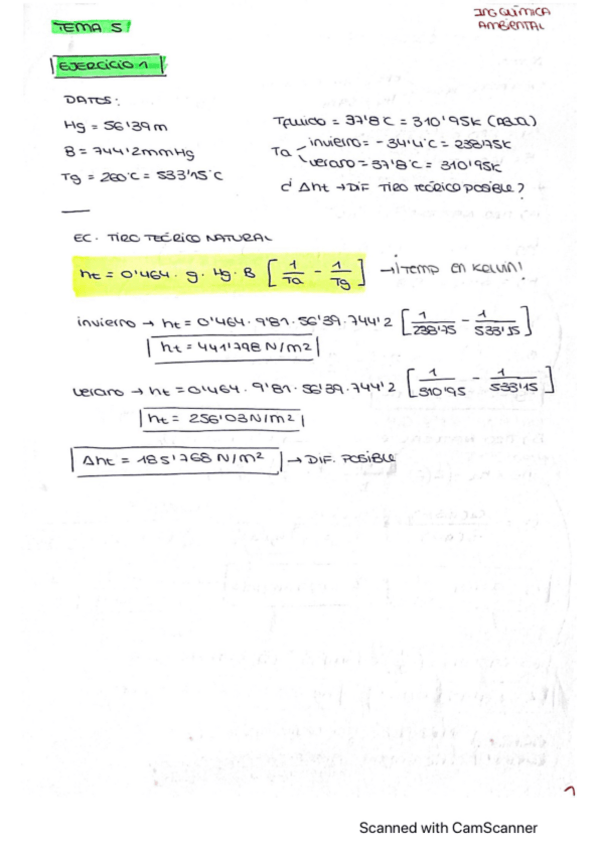 ING QUÍMICA
AMBIENTAL
TEMA 5
EJERCICIO 1
DATOS:
Hg = 56'39 m
B = 744'2 mmHg
Tg = 260°C = 533'15°C
Tfluido = 37'8°C = 310'95K
Ta
invierno = -34'4°C = 238'75K
verano = 37'8°C = 310'95K
¿ Δht → DIF TIRO TEÓRICO POSIBLE?
EC. TIRO TEÓRICO NATURAL
ht = 0'464 · g · Hg · B [ 1/Ta - 1/Tg ] → ¡TEMP EN KELVIN!
invierno → ht = 0'464 · 9'81 · 56'39 · 744'2 [ 1/238'75 - 1/533'15 ]
ht = 441'798 N/m2
verano → ht = 0'464 · 9'81 · 56'39 · 744'2 [ 1/310'95 - 1/533'15 ]
ht = 256'03 N/m2
Δht = 185'768 N/m2 → DIF. POSIBLE
1
Scanned with CamScanner